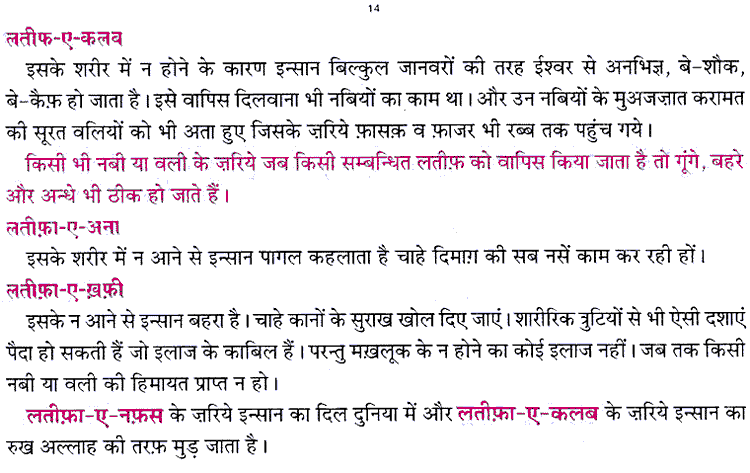 14
लतीफ-ए-कलव
इसके शरीर में न होने के कारण इन्सान बिल्कुल जानवरों की तरह ईश्वर से अनभिज्ञ, बे-शौक,
बे-कैफ़ हो जाता है। इसे वापिस दिलवाना भी नबियों का काम था। और उन नबियों के मुअजज़ात करामत
की सूरत वलियों को भी अता हुए जिसके ज़रिये फ़ासक़ व फ़ाजर भी रब्ब तक पहुंच गये।
किसी भी नबी या वली के ज़रिये जब किसी सम्बन्धित लतीफ़ को वापिस किया जाता है तो गूंगे, बहरे
और अन्धे भी ठीक हो जाते हैं।
लतीफ़ा-ए-अना
इसके शरीर में न आने से इन्सान पागल कहलाता है चाहे दिमाग़ की सब नसें काम कर रही हों।
लतीफ़ा-ए-ख़फ़ी
इसके न आने से इन्सान बहरा है। चाहे कानों के सुराख खोल दिए जाएं। शारीरिक त्रुटियों से भी ऐसी दशाएं
पैदा हो सकती हैं जो इलाज के काबिल हैं। परन्तु मख़लूक के न होने का कोई इलाज नहीं। जब तक किसी
नबी या वली की हिमायत प्राप्त न हो।
लतीफ़ा-ए-नफ़स के ज़रिये इन्सान का दिल दुनिया में और लतीफ़ा-ए-कलब के ज़रिये इन्सान का
रुख अल्लाह की तरफ़ मुड़ जाता है।